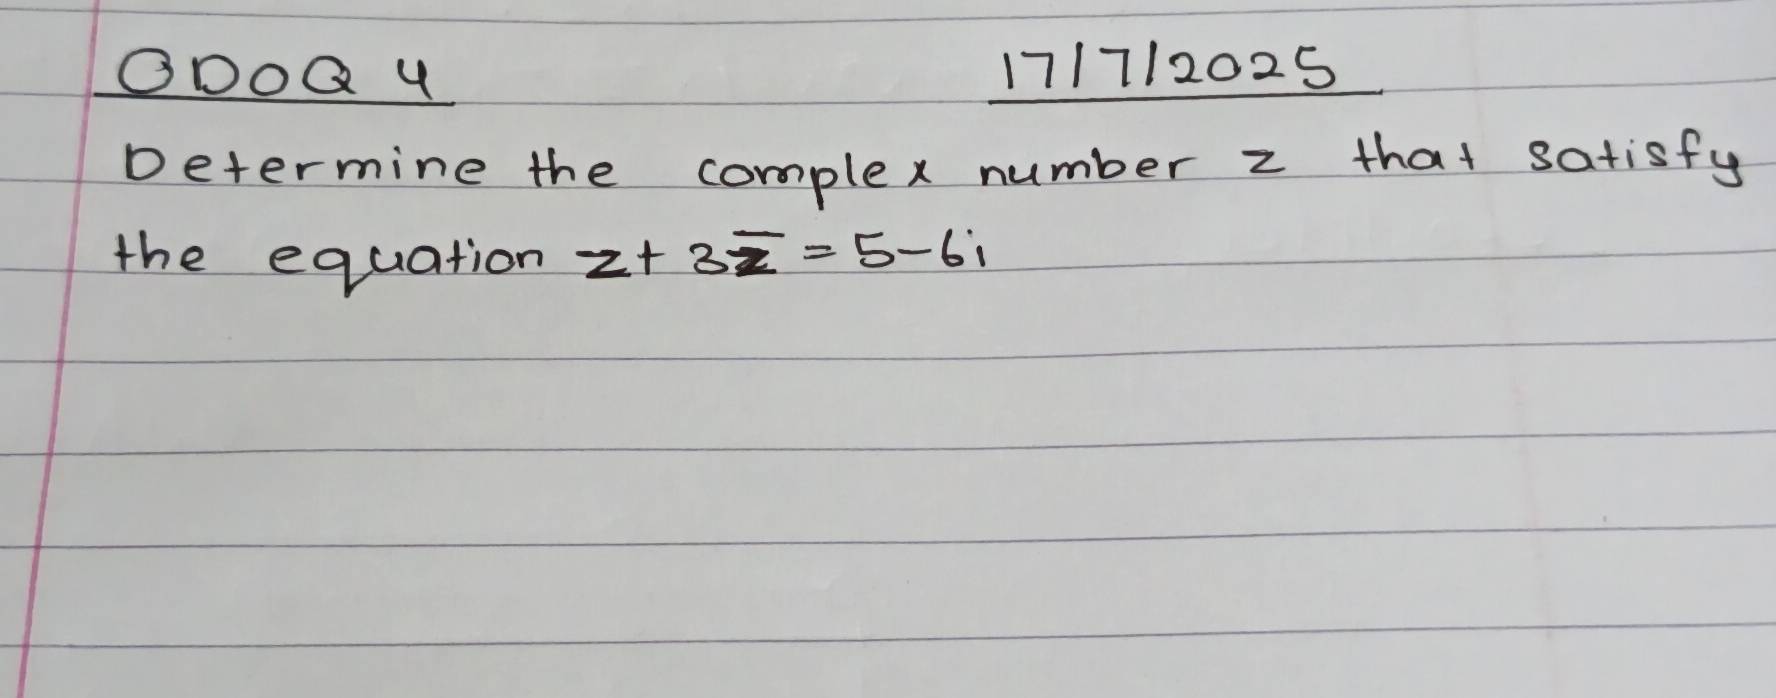 ODOQ 4 17/7/2025
Determine the complex number z that satisfy
the equation z + 3z̅ = 5-6i